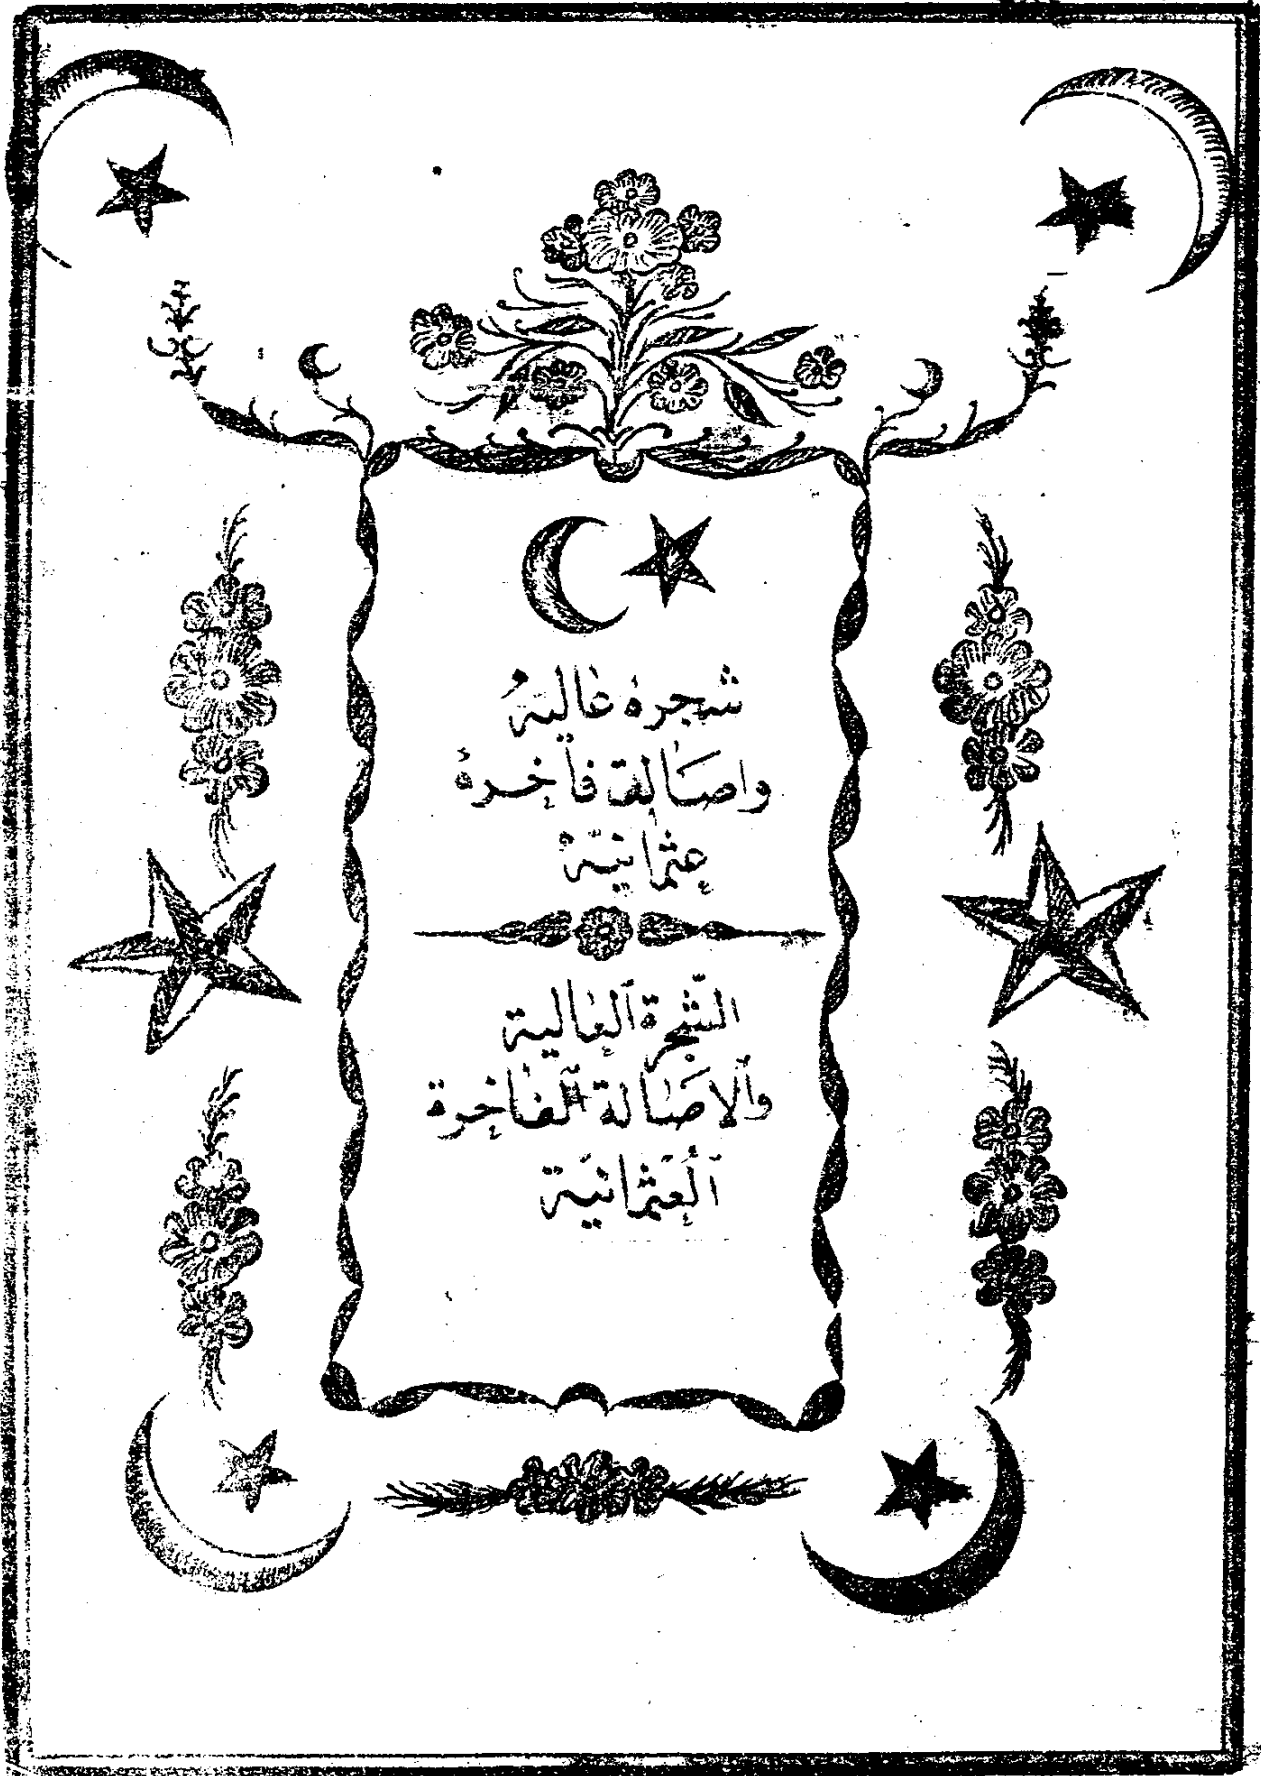 شجرهٔ عاليهٔ
واصالة فاخرهٔ
عثمانيّهٔ
الشّجرة ٱلعالية
وٱلاصالة ٱلفاخرة
ٱلعثمانيّة